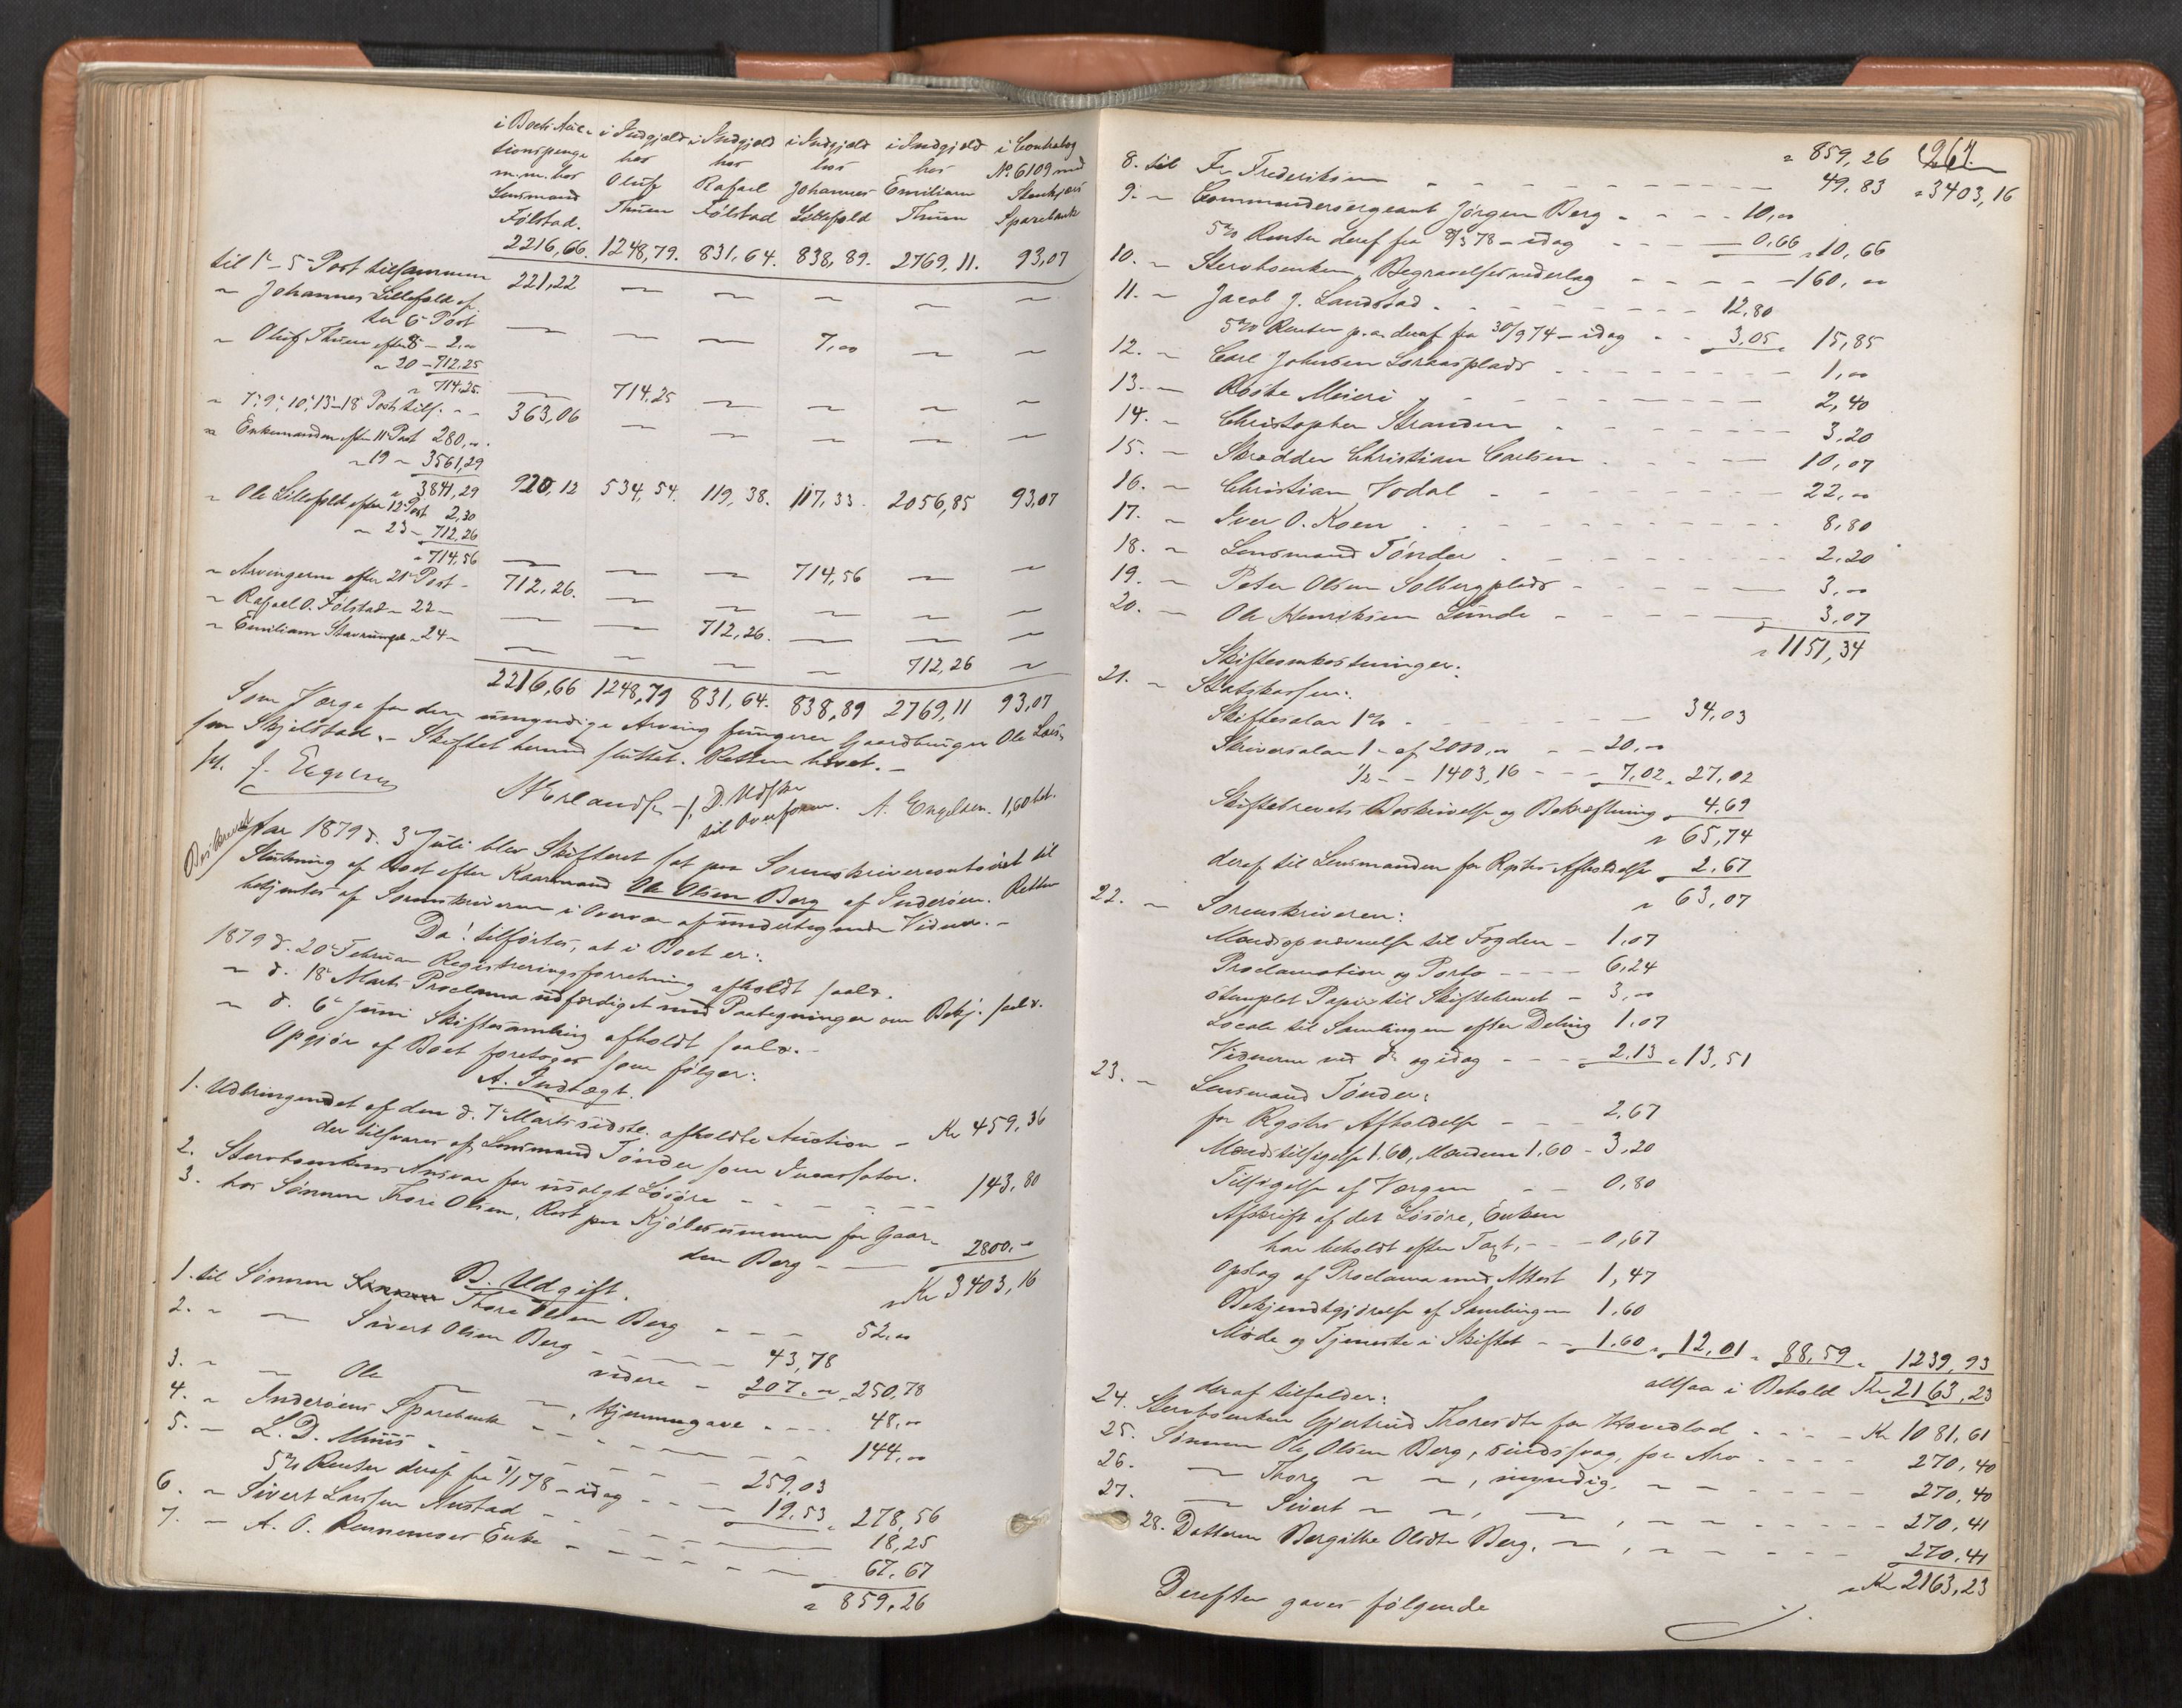 i Boets Auc- i Indgjæld i Indgjæld i Indgjæld i Indgjæld i Contrabog
tionspenge hos hos hos hos No 6109 med
m.m. hos Oluf Rafael Johannes Emilian Stenkjærs
Lensmand Thuen Følstad Lillefold Thuen Sparebank
Følstad.
2216,66. 1248,79. 831,64. 838,89. 2769,11. 93,07
til 1e - 5e Post tilsammen 221,22 — — — — —
" Johannes Lillefold ef-
ter 6 Post — — — 7,00 — —
" Oluf Thuen efter 8 - 2,00
" 20 - 712,25
" 714,25. — 714,25 — — — —
" 7e, 9e, 10e, 13e-18e Post tils. - - 363,06 — — — — —
" Enkemanden efter 11e Post 280,00.
" 19 " 3561,29
" 3841,29 920,12 534,54. 119,38. 117,33. 2056,85 93,07
" Ole Lillefold efter 12e Post 2,30
" 23 " 712,26
" 714,56 — — — 714,56 — —
" Arvingerne efter 21e Post - 712,26. — — — — —
" Rafael O. Følstad " 22 " — — 712,26. — — —
" Emilian " 24 " — — — — 712,26 —
2216,66 1248,79 831,64. 838,89 2769,11 93,07
Som Værge for den umyndige Arving fungerer Gaardbruger Ole Lars-
sen Skjelstad. - Skiftet hermed sluttet. Retten hævet. -
A. Engelsen. 1,60 bet.
Aar 1879 d. 3 Juli blev Skifteret sat paa Sorenskrivercontoiret til
Slutning af Boet efter Kaarmand Ole Olsen Berg af Inderøen. Retten
betjentes af Sorenskriveren i Overvær af undertegnede Vidner. -
Da! tilførtes, at i Boet er:
1879 d. 20e Februar Registreringsforretning afholdt saal.
" d. 18 Marts Proclama udfærdiget med Paategninger om Bekj. saal.
" d. 6e Juni Skiftesamling afholdt saal. -
Opgjør af Boet foretoges som følger:
A. Indtægt.
1. Udbringendet af den d. 7e Marts sidstl. afholdte Auction - Kr 459,36
der tilsvares af Lensmand Tønder som Incassator.
2. Stervboenkens Ansvar for usolgt Løsøre - - - 143,80
3. hos Sønnen Thore Olsen, Rest paa Kjøbesummen for Gaar-
den Berg - — 2800,00
" Kr 3403,16
B. Udgift.
1. til Sønnen Thore Olsen Berg - - - 52,00
2. " — Sivert Olsen Berg - — 43,78
videre - 207,00 " 250,78
3. " — Ole — " —, Hjemmegave - - - 48,00
4. " Inderøens Sparebank - - - 144,00
5. " L. D. Muus - - - 259,03
5% Renter deraf fra 1/1 78 - idag - - 19,53 " 278,56
6. " Sivert Larssen Austad - - - 18,25
7. " A. O. Rennemoes Enke - - - 67,67
" 859,26
267.
" 859,26
8. til Fr. Frederiksen - - - 49,83 " 3403,16
9. " Commandersergeant Jørgen Berg - - - 10,00
5% Renter deraf fra 8/3 78 - idag - - - 0,66 " 10,66
10. " Stervboenken, Begravelsesvederlag - - - 160,00
11. " Jacob J. Landstad - - - 12,80
5% Renter p.a. deraf fra 30/9 74 - idag - - 3,05 " 15,85
12. " Carl Johnsen Loraasplads - - - 1,00
13. " Røske Meieri - - - 2,40
14. " Christopher Stranden - - - 3,20
15. " Skrædder Christian Carlsen - - - 10,07
16. " Christian Vodal - - - 22,00
17. " Iver O. Koen - - - 8,80
18. " Lensmand Tønder - - - 2,20
19. " Peter Olsen Solbergplads - - - 3,00
20. " Ole Henriksen Lunde - - - 3,07
" 1151,34
Skifteomkostninger:
21. " Statskassen:
Skiftesalær 1% - - - 34,03
Skriversalær 1 " af 2000,00 - - 20,00
1/2 " - 1403,16 - - - 7,02 " 27,02
Skiftebrevets Beskrivelse og Bekræftning 4,69
" 65,74
deraf til Lensmanden for Rgstrs Afholdelse 2,67
" 63,07
22. " Sorenskriveren:
Mændsopnævnelse til Fogden - 1,07
Proclamation og Porto - - - 6,24
stemplet Papir til Skiftebrevet - 3,00
Locale til Samlingen efter Deling 1,07
Vidnerne ved do og idag - - - 2,13 " 13,51
23. " Lensmand Tønder:
for Rgstrs Afholdelse - - - 2,67
Mændstilsigelse 1.60, Mændene 1.60 - 3,20
Tilsigelse af Værgen - - 0,80
Afskrift af det Løsøre, Enken
har beholdt efter Taxt, - - - 0,67
Opslag af Proclama med Attest 1,47
Bekjendtgjørelse af Samlingen 1.60
Møde og Tjeneste i Skiftet - - 1.60 " 12,01 " 88,59 " 1239,93
altsaa i Behold Kr 2163,23
deraf tilfalder:
24. Stervboenken Gjertrud Thoresdtr for Hovedlod - - - Kr 1081,61
25. Sønnen Ole Olsen Berg, sindssvag, for Arv - - - 270,40
26. — Thore " ", myndig, " " - - - 270,40
27. — Sivert " ", —, " " - - - 270,41
28. Datteren Bergithe Olsdtr Berg, —, " " - - - 270,41
" Kr 2163,23
Derefter gaves følgende